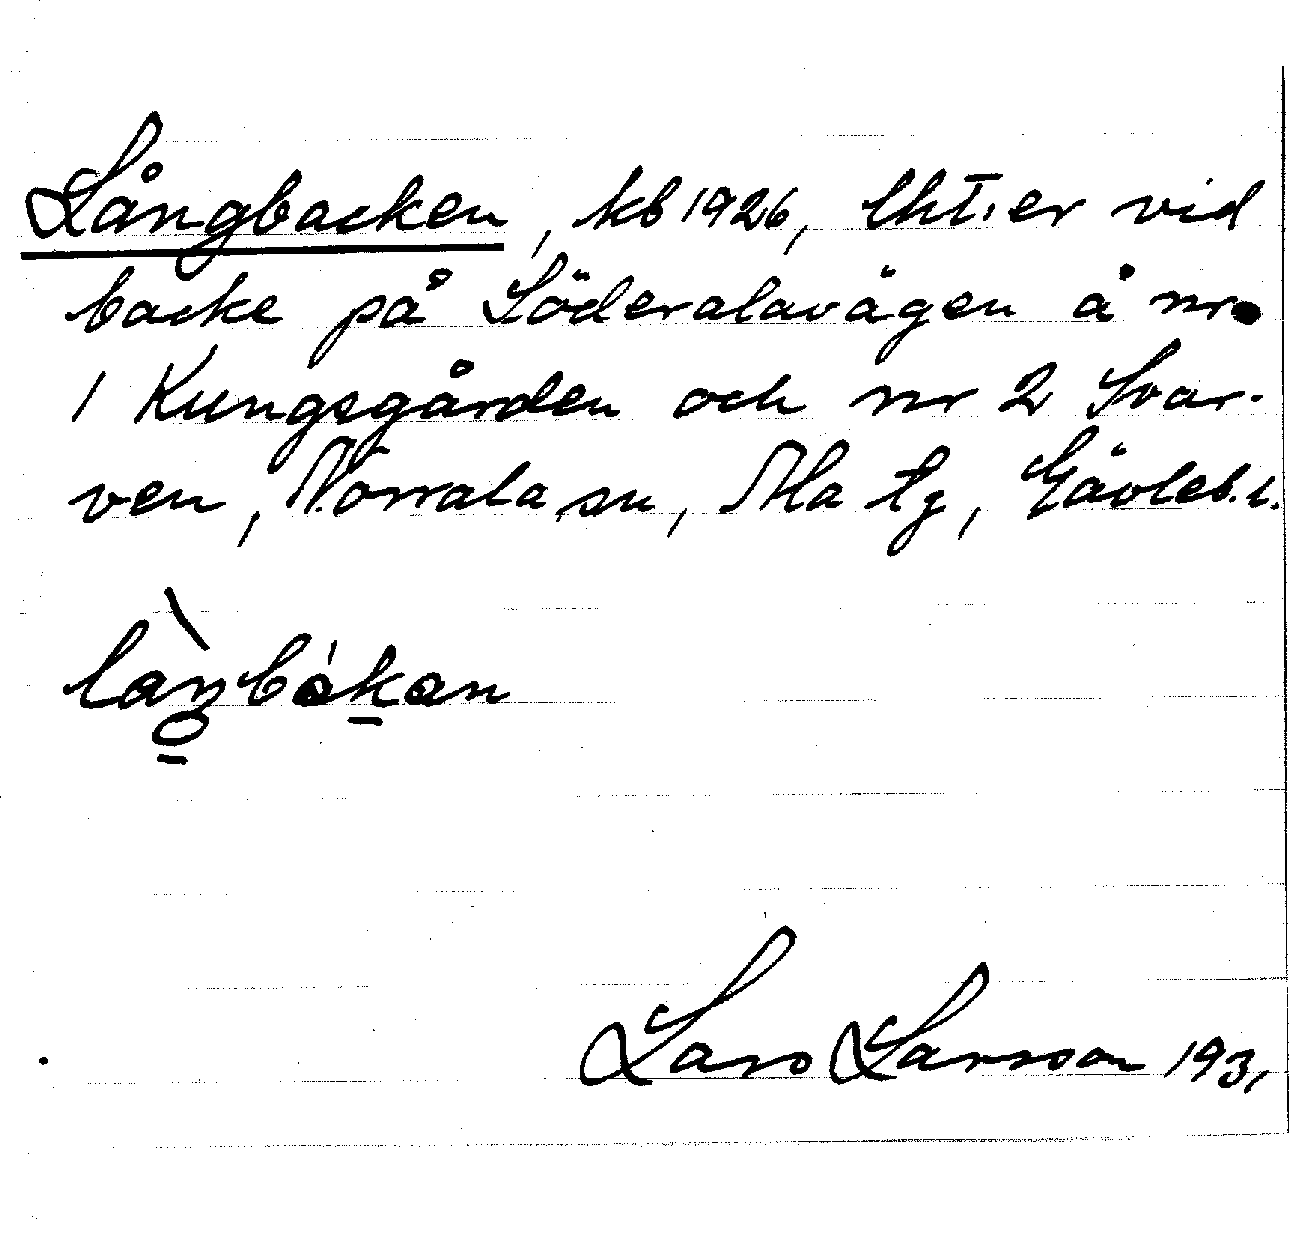 Långbacken, kb 1926, lht.er vid
backe på Söderalavägen å nr
1 Kungsgården och nr 2 Svar-
ven, Norrala sn, Ala tg, Gävleb. l.
Lars Larsson 1931